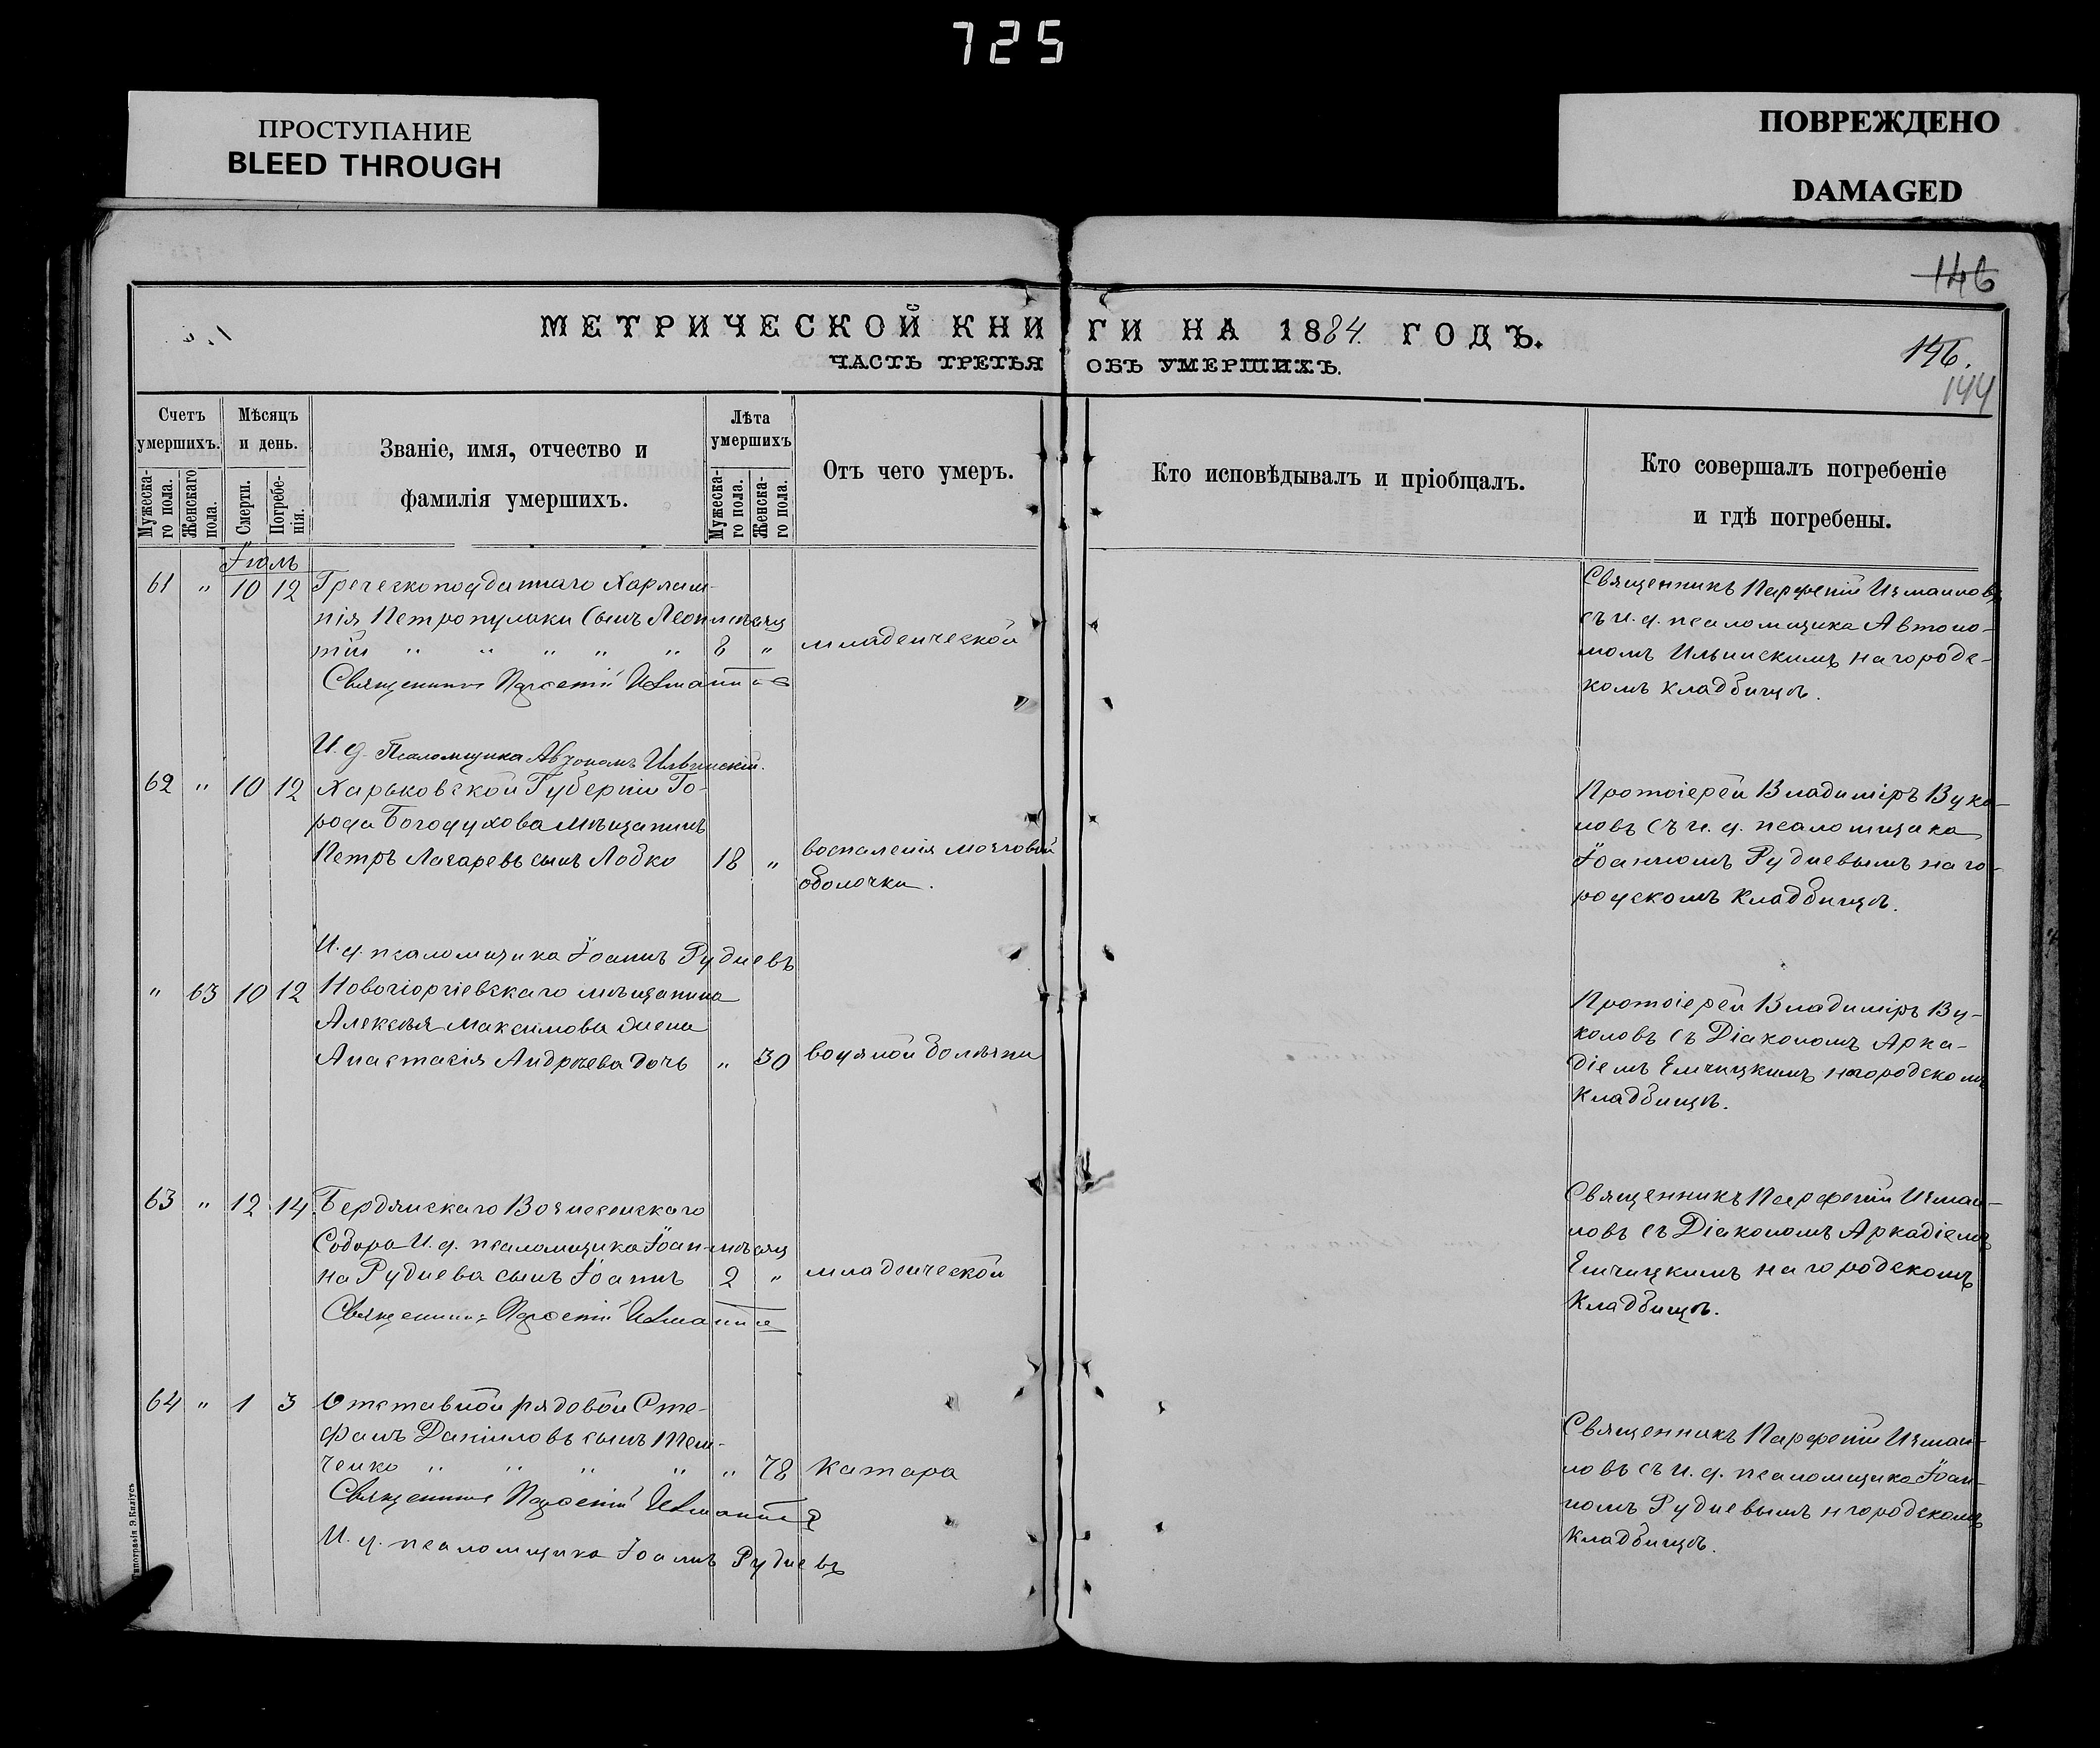 725
ПРОСТУПАНИЕ
BLEED THROUGH
ПОВРЕЖДЕНО
DAMAGED
146
МЕТРИЧЕСКОЙ КНИГИ НА 1884. ГОДЪ.
ЧАСТЬ ТРЕТЬЯ ОБЪ УМЕРШИХЪ.
146.
144
Счетъ умершихъ.
Мужеска-го пола.
Женскаго пола.
Мѣсяцъ и день.
Смерти.
Погребе-нія.
Званіе, имя, отчество и
фамилія умершихъ.
Лѣта умершихъ
Мужеска-го пола.
Женска-го пола.
Отъ чего умеръ.
Кто исповѣдывалъ и пріобщалъ.
Кто совершалъ погребеніе
и гдѣ погребены.
Іюль
61 " 10 12 Греческоподданнаго Харлам-
пія Петропулаки сынъ Леон- мѣсяц
тій " " " " " 8 " младенческой
Священникъ Парѳеній Измаиловъ
Священникъ Парфеній Измаиловъ
съ и. д. псаломщика Автоно-
момъ Ильинскимъ на городс-
комъ кладбищѣ.
И. д. Псаломщика Автономъ Ильинскій.
62 " 10 12 Харьковской Губерніи Го-
рода Богодухова мѣщанинъ
Петръ Лазаревъ сынъ Лобко 18 " воспаленія мозговой
оболочки.
Протоіерей Владиміръ Вуко-
ловъ съ и. д. псаломщика
Іоанномъ Рудневымъ на го-
родскомъ кладбищѣ.
И. д. псаломщика Іоаннъ Рудневъ
" 63 10 12 Новогіоргіевскаго мѣщанина
Алексѣя Максимова жена
Анастасія Андрѣева дочь " 30 водяной болѣзни
Протоіерей Владиміръ Ву-
коловъ съ Діакономъ Арка-
діемъ Емчицкимъ на городскомъ
кладбищѣ.
63 " 12 14 Бердянскаго Вознесенскаго
Собора И. д. псаломщика Іоан- мѣсяц
на Руднева сынъ Іоаннъ 2 " младенческой
Священникъ Парѳеній Измаиловъ
Священникъ Парфеній Измаи-
ловъ съ Діакономъ Аркадіемъ
Емчицкимъ на городскомъ
кладбищѣ.
64 " 1 3 Отставной рядовой Сте-
фанъ Даніиловъ сынъ Тем-
ченко " " " " " 78 катара
Священникъ Парѳеній Измаиловъ
И. д. псаломщика Іоаннъ Рудневъ
Священникъ Парфеній Измаи-
ловъ съ и. д. псаломщика Іоан-
номъ Рудневымъ н городскомъ
кладбищѣ.
Типографія Э. Килiусъ